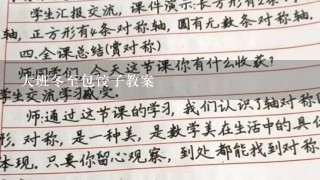 学生汇报交流，课件演示：长方形有2条
轴，正方形有4条对称轴，圆有无数条对称轴.
四.全课总结(赏对称)
师:同学们,今天这节课你有什么收获?
大班冬至包饺子教案
学生交流学习感受.
师:通过这节课的学习，我们认识了轴对称
形.对称，是一种美，是数学美在生活中的具
体现.只要你留心观察，到处都能找到对称